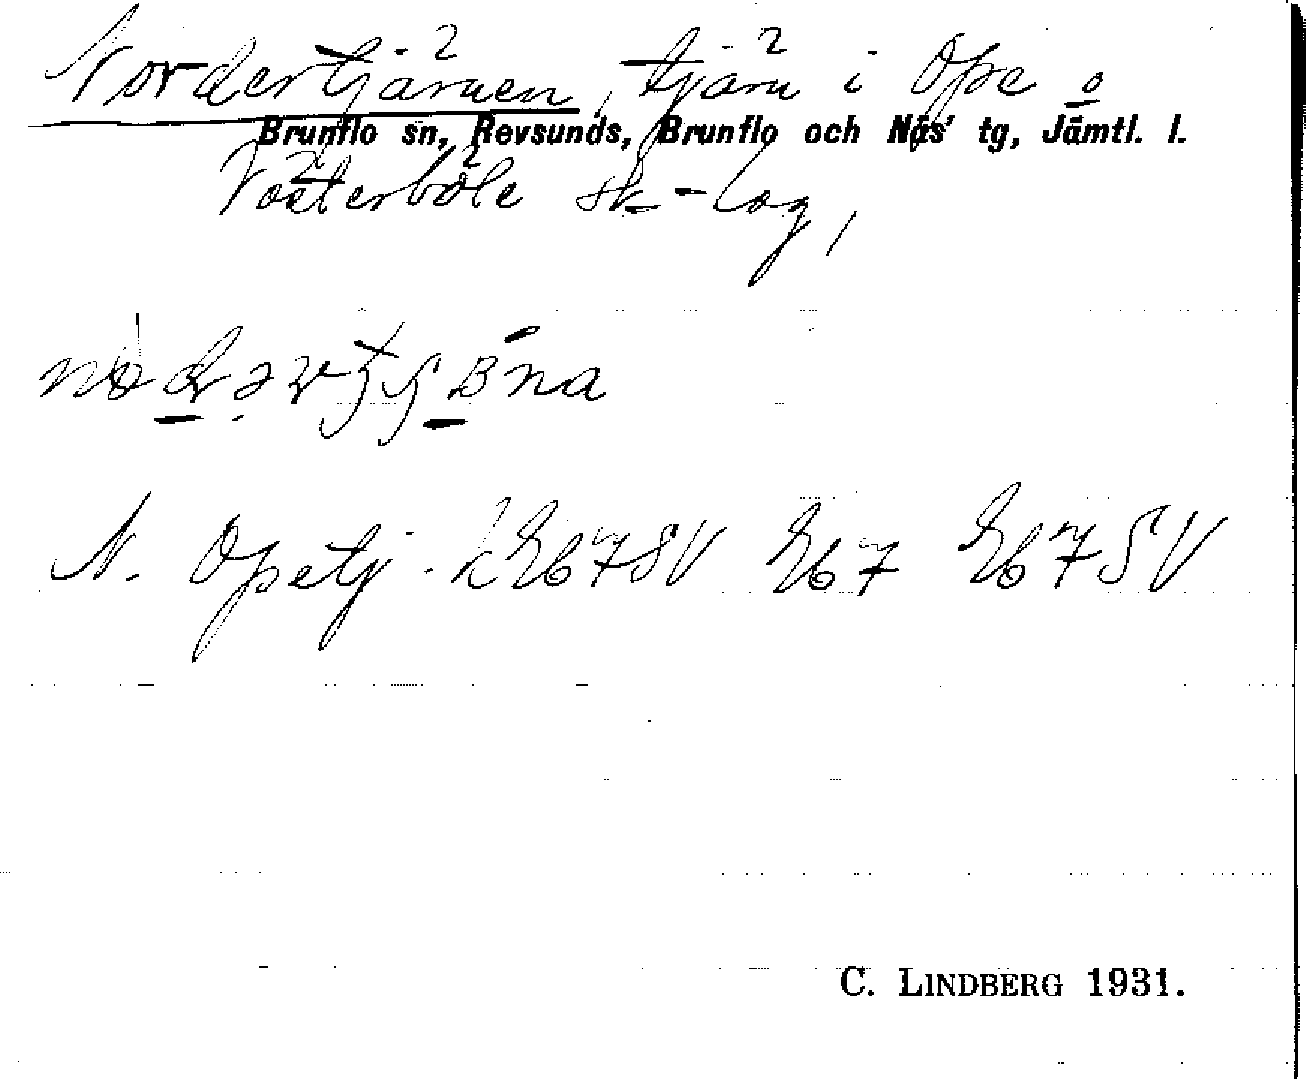 Nordertjärnen, tjärn i Ope o
Brunflo sn, Revsunds, Brunflo och Näs' tg, Jämtl. l.
Västerböle sk-lag,
N. Opetj. kEb7SV Eb7 Eb7SV
C. LINDBERG 1931.